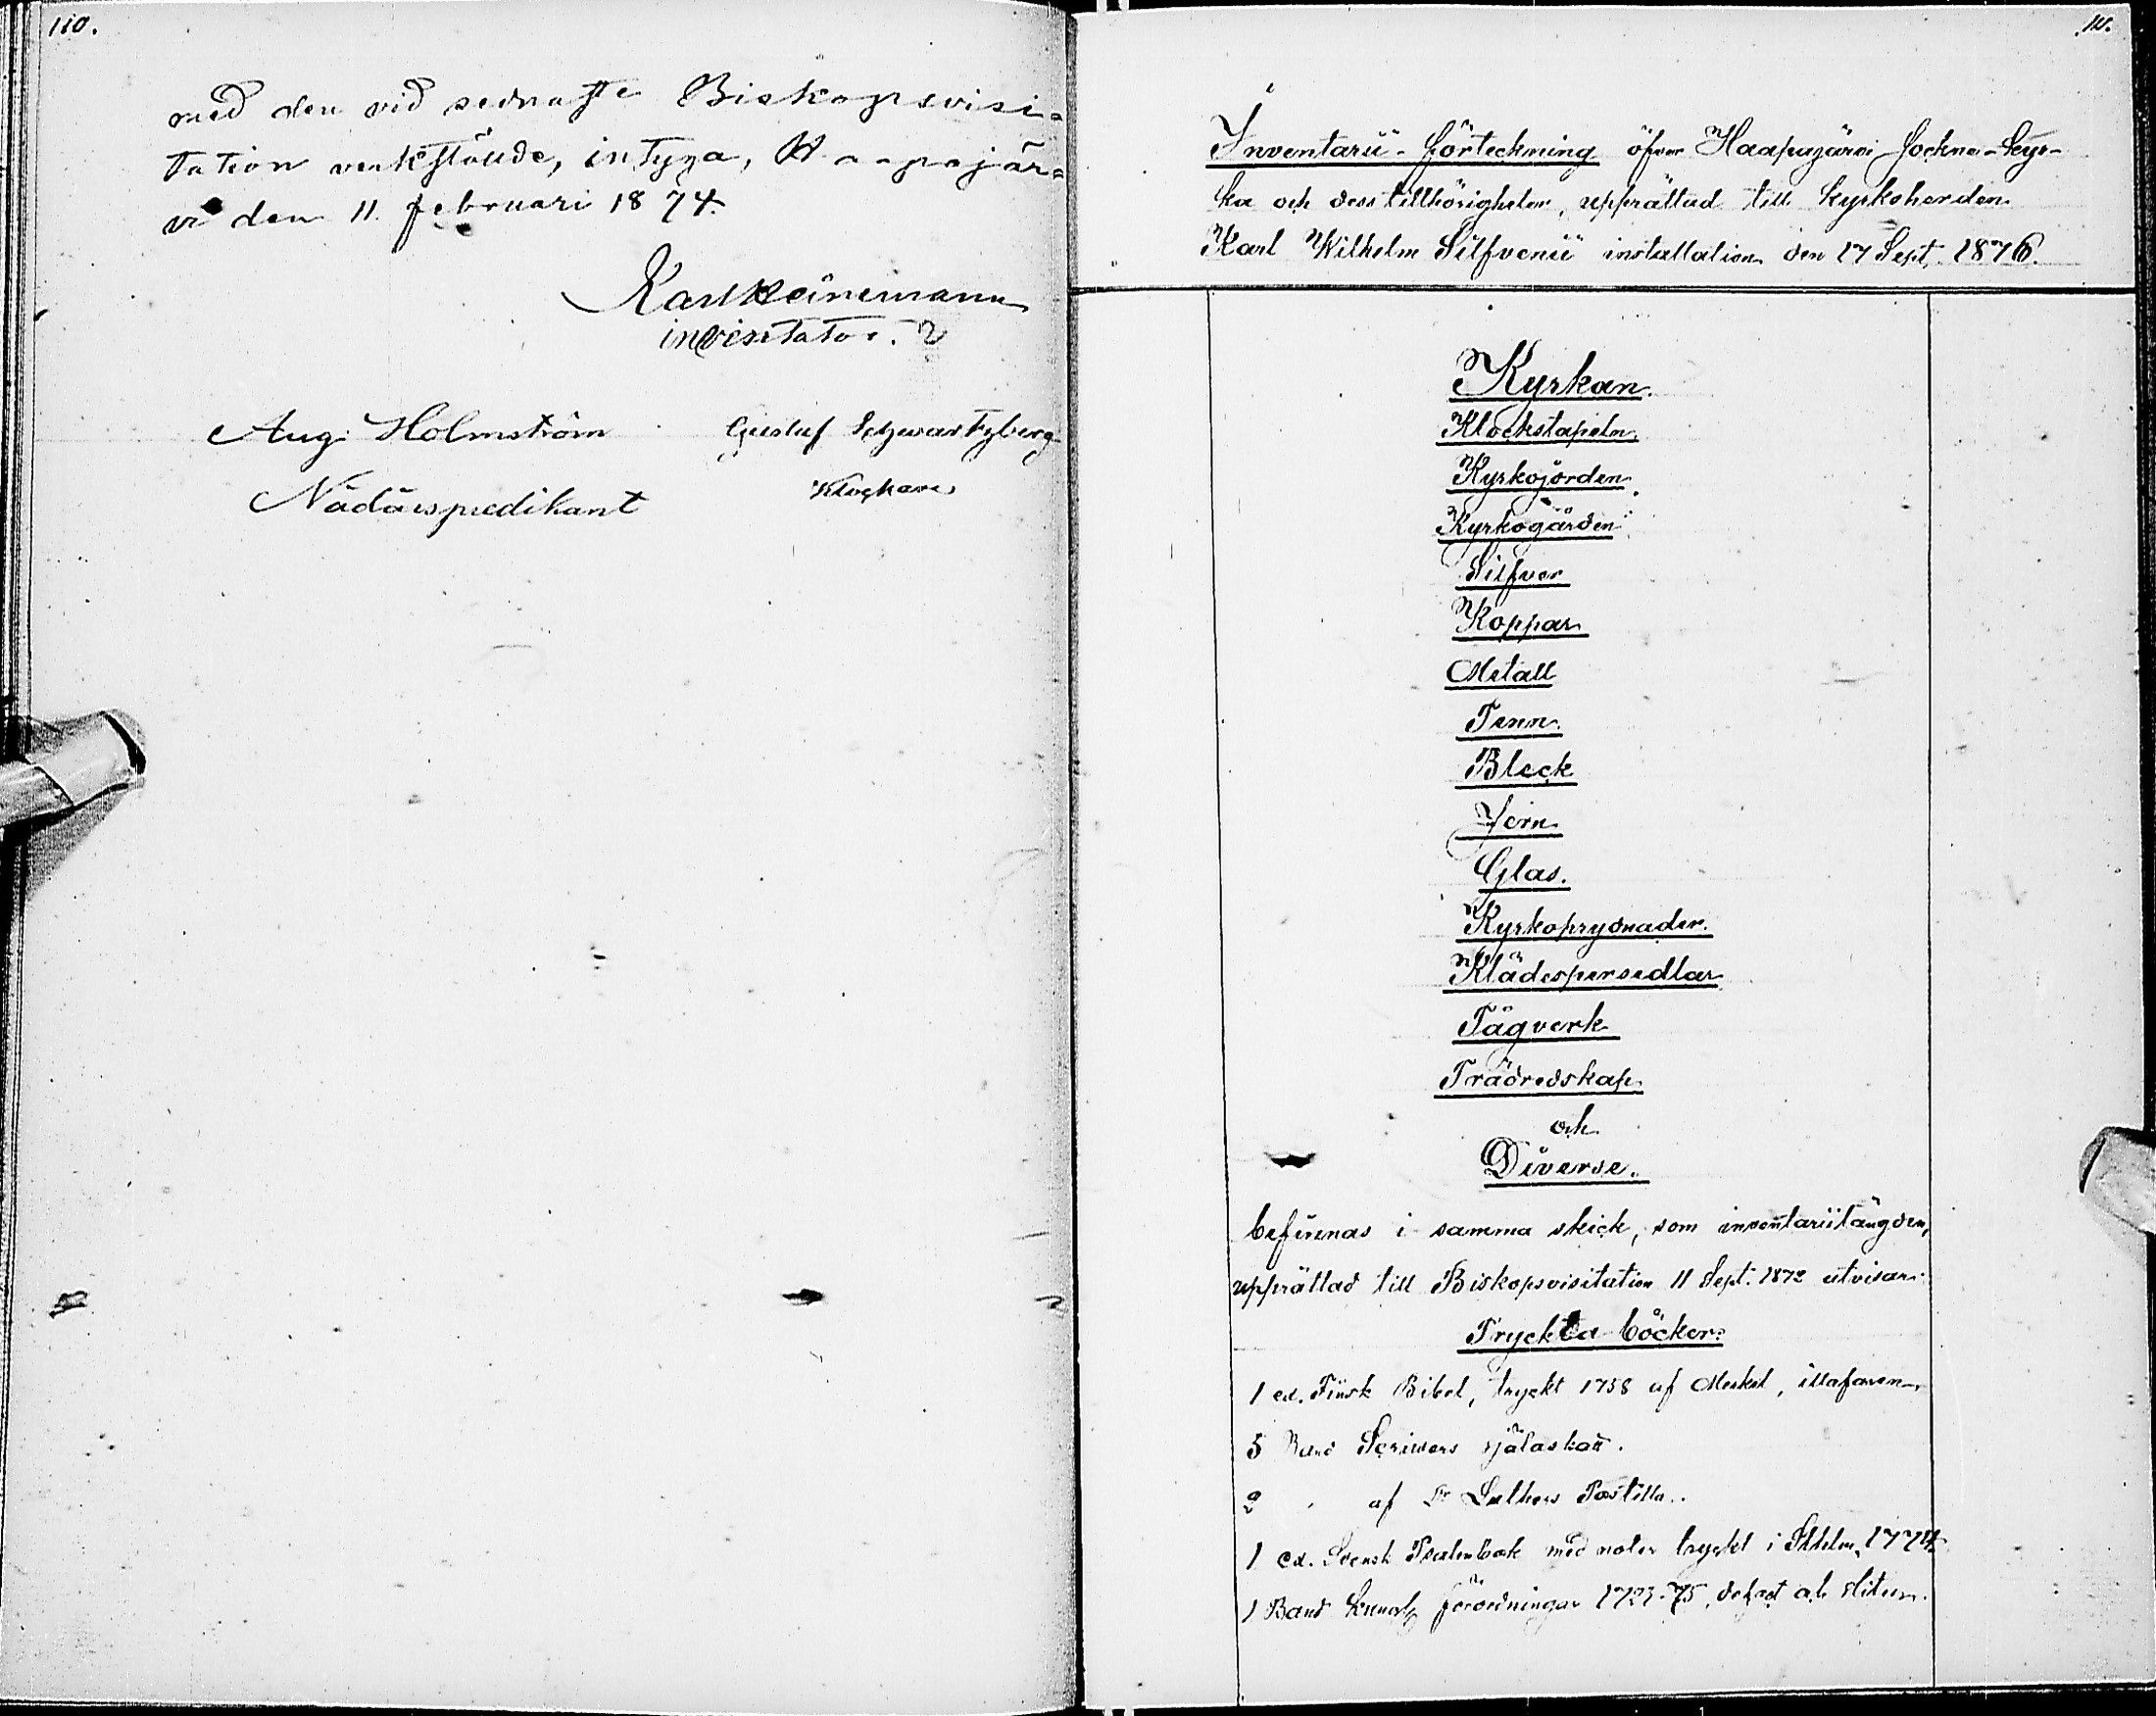 110.
med den vid sednaste Biskopsvisi-
tation verkstälde, intyga, Haapajär-
vi den 11 februari 1874.
Karl Heinemann
invisitator.
Aug. Holmström
Nådårspredikant
Gustaf Schwartzberg
Klockare
111.
Inventarii-förteckning öfver Haapajärvi Sockne-kyr-
ka och dess tillhörigheter, upprättad till kyrkoherden
Karl Wilhelm Silfvenii installation den 17 Sept. 1876.
Kyrkan.
Klockstapeln.
Kyrkojorden.
Kyrkogården.
Silfver
Koppar
Metall
Tenn.
Bleck
Jern
Glas.
Kyrkoprydnader.
Klädespersedlar
Tågverk
Trädredskap
och
Diverse.
befinnas i samma skick, som inventariilängden,
upprättad till Biskopsvisitation 11 Sept. 1872 utvisar.
Tryckta böcker.
1 ex. Finsk Bibel, tryckt 1758 af Merkel, illafaren
3 Band Scrivers själaskatt.
2 " af Dr Luthers Postilla.
1 ex. Svensk Psalmbok med noter tryckt i Sthlm, 1774
1 Band Kunglg förordningar 1723-75, defect och sliten.